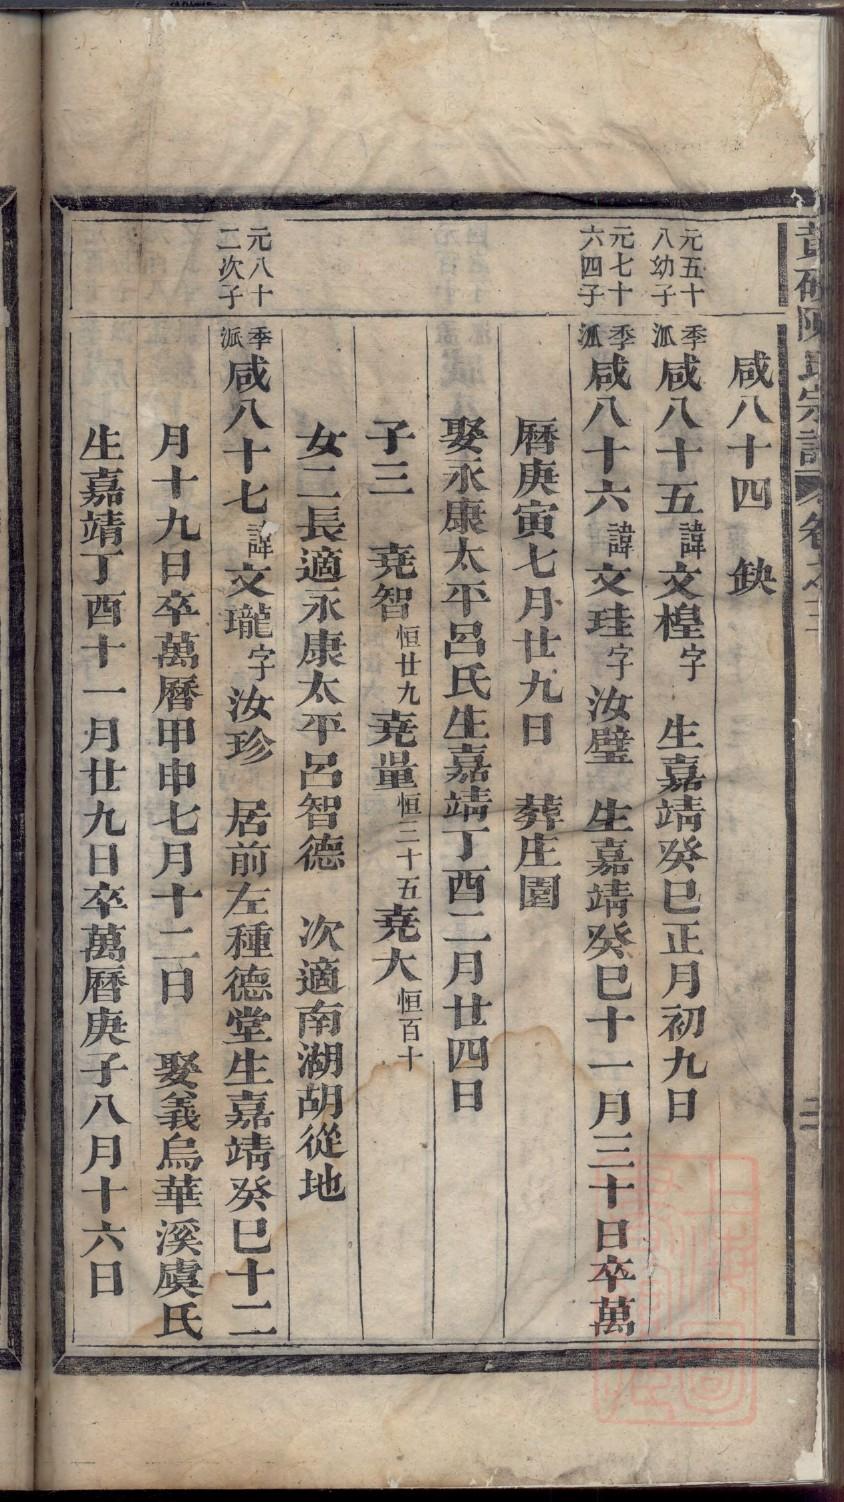 陳氏宗譜 卷之三
咸八十四 缺
元五十八幼子 季派 咸八十五 諱文楻 字 生嘉靖癸巳正月初九日
元七十六四子 季派 咸八十六 諱文珪 字汝璧 生嘉靖癸巳十一月三十日卒萬
曆庚寅七月廿九日 葬庄園
娶永康太平呂氏生嘉靖丁酉二月廿四日
子三 堯智 恒廿九 堯量 恒三十五 堯大 恒百十
女二長適永康太平呂智德 次適南湖胡從地
元八十二次子 季派 咸八十七 諱文瓏 字汝珍 居前左種德堂生嘉靖癸巳十二
月十九日卒萬曆甲申七月十二日 娶義烏華溪虞氏
生嘉靖丁酉十一月廿九日卒萬曆庚子八月十六日